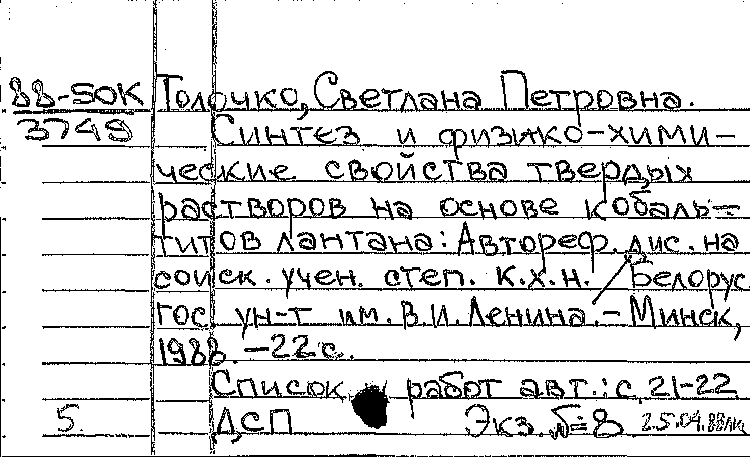 88-5ОК Толочко, Светлана Петровна.
3749 Синтез и физико-хими-
ческие свойства твердых
растворов на основе кобаль-
титов лантана: Автореф. дис. на
соиск. учен. степ. к.х.н. / Белорус
гос. ун-т им. В.И. Ленина. - Минск,
1988. - 22 с.
Список работ авт.: с. 21-22
5. ДСП Экз. №8 25.04.88